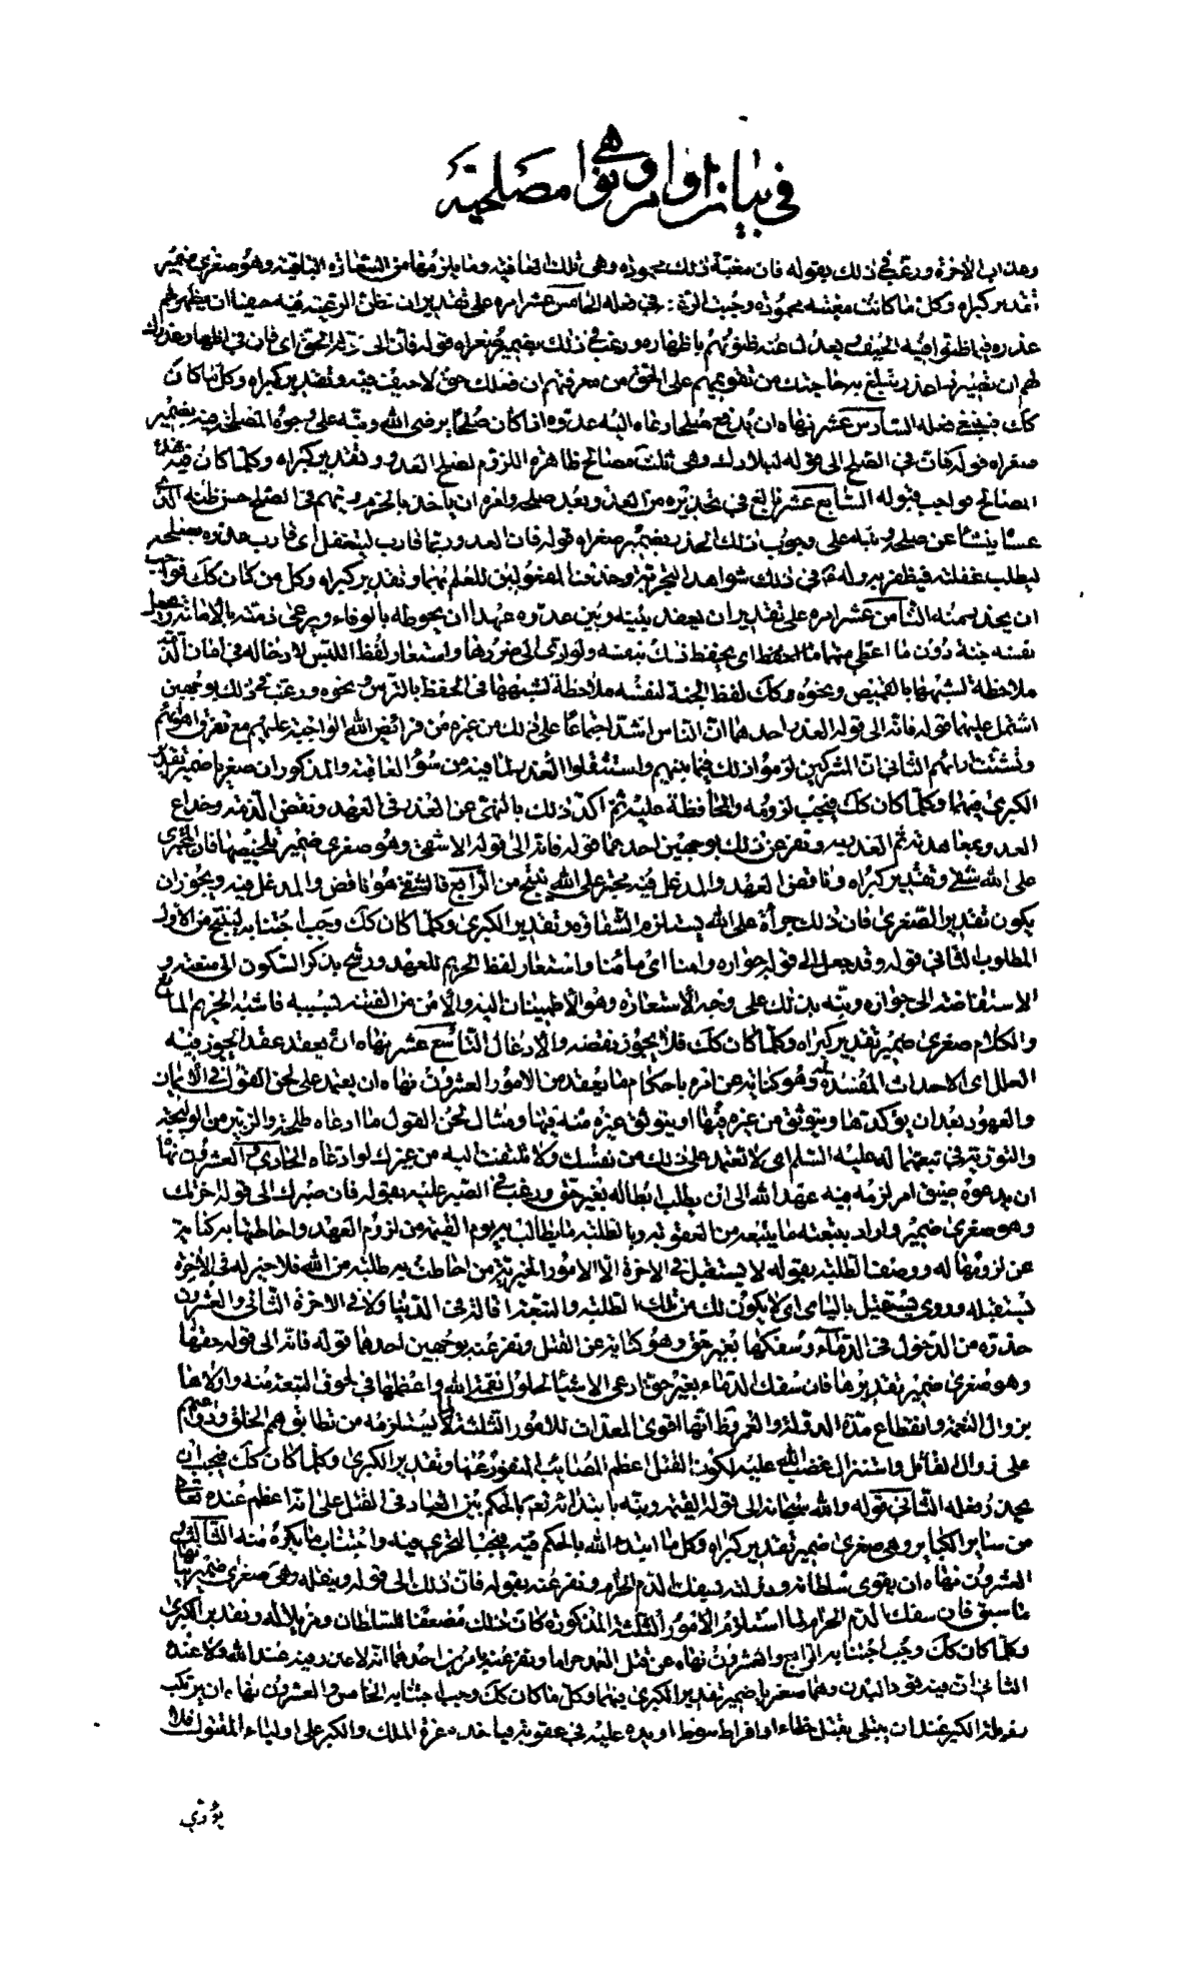 في بيان اوامر ونواهي مصلحية
وعذاب الآخرة ورغب في ذلك بقوله فان مغبة ذلك محمودة وهي تلك العاقبة وما يلزمها من السعادة الباقية وهو صغرى ضمير
تقدير كبراه وكل ما كانت مغبته محمودة وجبت الرغبة في فعله الخامس عشر امره على تقدير ان تظن الرعية فيه حيفا ان يظهر لهم
عذره فيما ظنوا فيه الحيف ويعدل عنه ظنونهم باظهاره ورغب في ذلك بضمير صغراه قوله فان الى قوله الحق اى فان في اظهار عذرك
لهم ان تصير ذا عذر تبلغ به حاجتك من تقويمهم على الحق من معرفتهم ان فعلك حق لا حيف فيه وتقدير كبراه وكل ما كان
كك فينبغي فعله السادس عشر نهاه ان يدفع صلحا دعاه اليه عدوه اذا كان صلحا يرضى الله ونبه على وجوه المصلحة فيه بضمير
صغراه قوله فان في الصلح الى قوله لبلادك وهي ثلث مصالح ظاهرة اللزوم لصلح العدو وتقدير كبراه وكلما كان فيه هذه
المصالح فواجب قبوله السابع عشر بالغ في تحذيره من العدو بعد صلحه وامره ان ياخذ بالحزم ويتهم في الصلح حسن ظنه الذى
عساه ينشأ عن صلحه ونبه على وجوب ذلك الحذر بضمير صغراه قوله فان العدو ربما قارب ليتغفل اى قارب عدوه بصلحه
ليطلب غفلته فيظفر به وله في ذلك شواهد التجربة وحذف المفعولين للعلم بهما وتقدير كبراه وكل من كان كك فواجب
ان يحذر منه الثامن عشر امره على تقدير ان يعقد بينه وبين عدوه عهدا ان يحوطه بالوفاء ويرعى ذمته بالامانة ويجعل
نفسه جنة دون ما اعطى منهما اى يحفظ ذلك بنفسه ولو ادى الى ضررها واستعار لفظ اللبس لادخاله في امان الذمة
ملاحظة لشبهها بالقميص ونحوه وكك لفظ الجنة لنفسه ملاحظة لشبهها في الحفظ بالترس ونحوه ورغب في ذلك بوجهين
اشتمل عليهما قوله فانه الى قوله الغدر احدهما ان الناس اشد اجتماعا على ذلك من غيره من فرائض الله الواجبة عليهم مع تفرق اهوائهم
وتشتت ارائهم الثاني ان المشركين لزموا ذلك فيما بينهم واستثقلوا الغدر لما فيه من سوء العاقبة والمذكوران صغريا ضمير تقدير
الكبرى فيهما وكلما كان كك فيجب لزومه والمحافظة عليه ثم اكد ذلك بالنهى عن الغدر في العهد ونقض الذمة وخداع
العدو بمعاهدته ثم الغدر به ونفر عن ذلك بوجهين احدهما قوله فانه الى قوله الا شقى وهو صغرى ضمير تلخيصها فان المجترى
على الله شقى وتقدير كبراه وناقض العهد والمدغل فيه مجتر على الله ينتج من الرابع فالشقى هو ناقض والمدغل فيه ويجوز ان
يكون تقدير الصغرى فان ذلك جرأة على الله يستلزم الشقاوة وتقدير الكبرى وكلما كان كك وجب اجتنابه لينتج من الاول
المطلوب الثاني قوله وقد جعل الى قوله جواره وامنا اى مأمنا واستعار لفظ الحريم للعهد ورشح بذكر السكون الى منعته و
الاستفاضة الى جواره ونبه بذلك على وجه الاستعارة وهو الاطمينان اليه والامن من الفتنة بسببه فاشبه الحريم المانع
والكلام صغرى ضمير تقدير كبراه وكلما كان كك فلا يجوز نقضه والادغال التاسع عشر نهاه ان يعقد عقدا يجوز فيه
العلل اى الاحداث المفسدة له وهو كناية عن امره باحكام ما يعقد من الامور العشرون نهاه ان يعتمد على لحن القول في الايمان
والعهود بعد ان يؤكدها ويتوثق من غيره فيها او يتوثق غيره منه فيها ومثال لحن القول ما ادعاه طلحة والزبير من الوليجة
والتورية في بيعتهما له عليه السلم اى لا تعتمد على ذلك من نفسك ولا تلتفت اليه من غيرك لو ادعاه الحادى والعشرون نهاه
ان يدعوه ضيق امر لزمه فيه عهد الله الى ان يطلب ابطاله بغير حق ورغب في الصبر عليه بقوله فان صبرك الى قوله اخرتك
وهو صغرى ضمير واراد بتبعته ما يتبعه من العقوبة وبالطلبة ما يطالب به يوم القيمة من لزوم العهد واحاطتها به كناية
عن لزومها له ووصف الطلبة بقوله لا يستقبل في الاخرة الا الامور الخيرية من احاطت به طلبة من الله فلا خير له في الاخرة
يستقبله وروى يستقيل بالياء اى لا يكون لك من تلك الطلبة والتبعة اقالة في الدنيا ولا في الاخرة الثاني والعشرون
حذره من الدخول في الدماء وسفكها بغير حق وهو كناية عن القتل ونفر عنه بوجهين احدهما قوله فانه الى قوله حقها
وهو صغرى ضمير تقديرها فان سفك الدماء بغير حق ادعى الاشياء لحلول نقمة الله واعظمها في لحوق التبعة منه واولاها
بزوال النعمة وانقطاع مدة الدولة والعمر وظ انها اقوى المعدات للامور الثلثة لما يستلزمه من تطابق همم الخلق ودواعيهم
على زوال القاتل واستنزال غضب الله عليه لكون القتل اعظم المصائب المنفور عنها وتقدير الكبرى وكلما كان كك فيجب ان
يحذر فعله الثاني قوله والله سبحانه الى قوله القيمة ونبه بابتدائه تعالى بالحكم بين العباد في القتل على انه اعظم عنده تعالى
من سائر الكبائر وهي صغرى ضمير تقدير كبراه وكل ما ابتدء الله بالحكم فيه فيجب التحرى فيه واجتناب ما يكره منه الثالث و
العشرون نهاه ان يقوى سلطانه ودولته بسفك الدم الحرام ونفر عنه بقوله فان ذلك الى قوله وينقله وهي صغرى ضمير بيانها
ما سبق فان سفك الدم الحرام لما استلزم الامور الثلثة المذكورة كان ذلك مضعفا للسلطان ومزيلا له وتقدير الكبرى
وكلما كان كك وجب اجتنابه الرابع والعشرون نهاه عن قتل العمد حراما ونفر عنه بامرين احدهما انه لا عذر فيه عند الله ولا عنده
الثاني ان فيه قود البدن وهما صغريا ضمير تقدير الكبرى فيهما وكل ما كان كك وجب اجتنابه الخامس والعشرون نهاه ان يرتكب
رذيلة الكبر عند ان يبتلى بقتل خطاء او افراط سوطه او يده عليه في عقوبة فياخذه عزة الملك والكبر على اولياء المقتول فلا
يؤدي